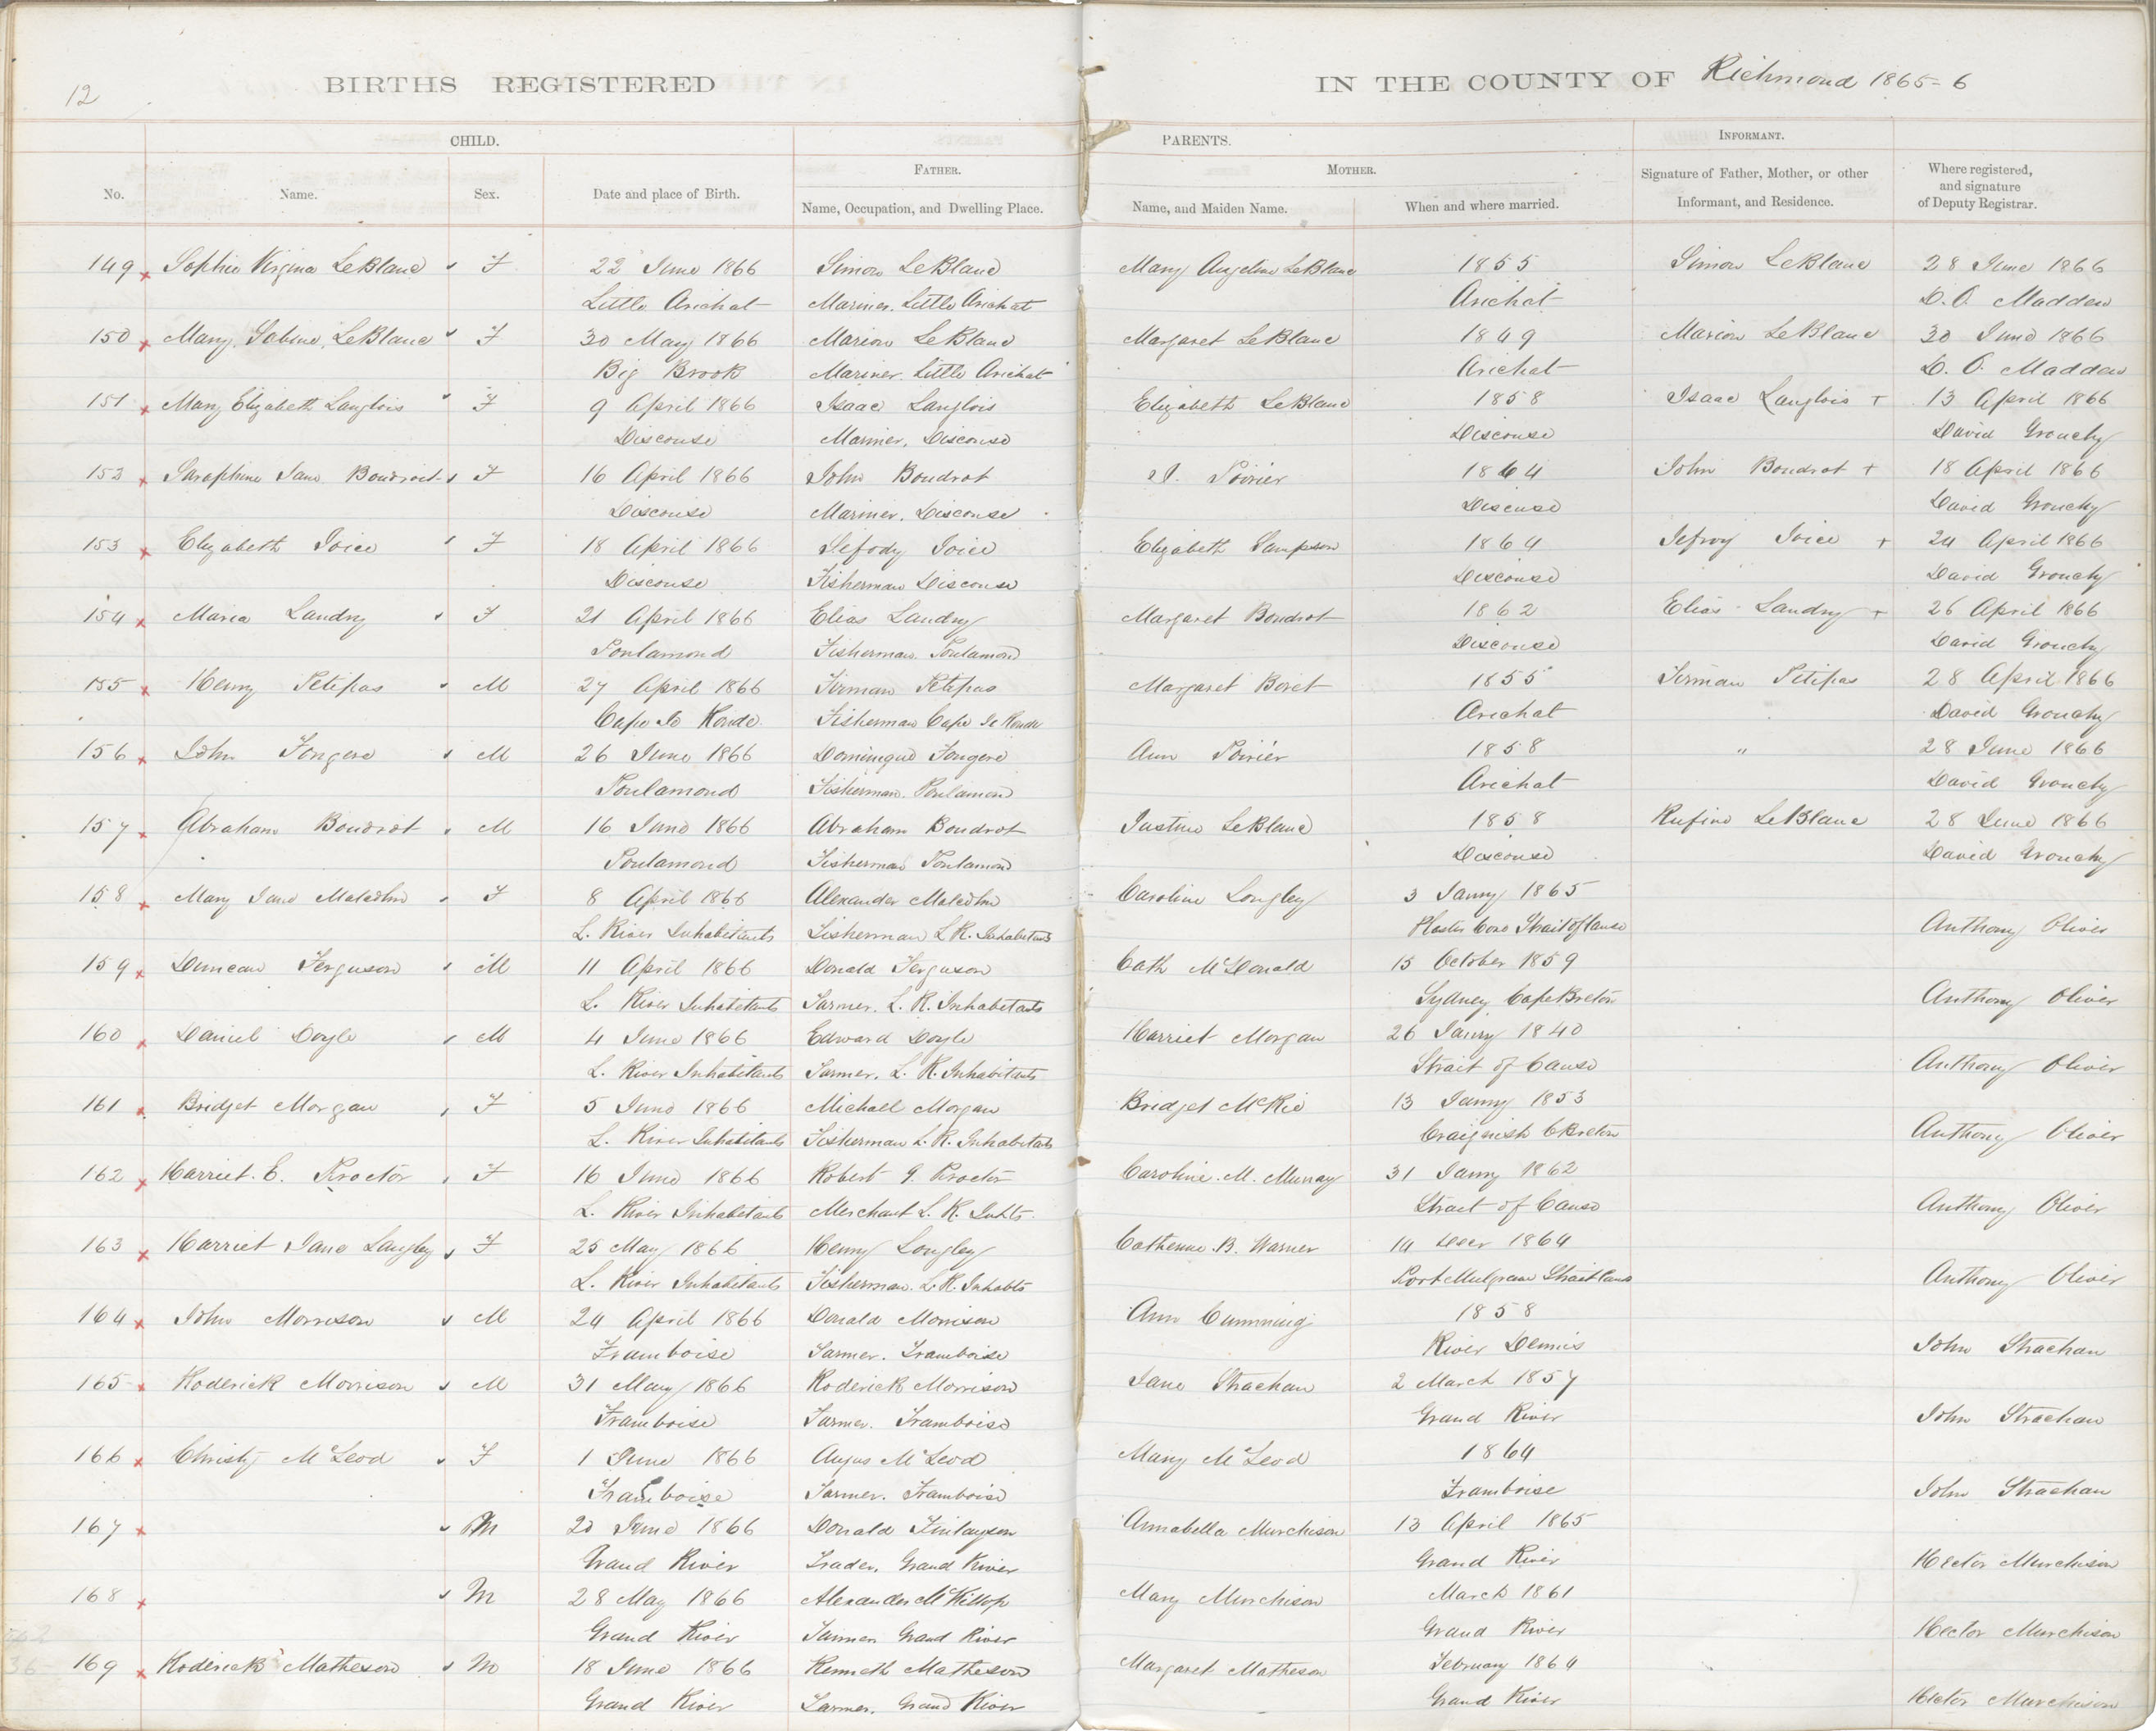 12
BIRTHS REGISTERED IN THE COUNTY OF Richmond 1865-6
CHILD. PARENTS. INFORMANT.
FATHER. MOTHER.
No. Name. Sex. Date and place of Birth. Name, Occupation, and Dwelling Place. Name, and Maiden Name. When and where married. Signature of Father, Mother, or other Informant, and Residence. Where registered, and signature of Deputy Registrar.
149 Sophie Virginia LeBlanc F 22 June 1866 Simon LeBlanc Mary Angeline LeBlanc 1855 Simon LeBlanc 28 June 1866
Little Arichat Mariner. Little Arichat Arichat D. O. Madden
150 Mary Sabine LeBlanc F 30 May 1866 Marion LeBlanc Margaret LeBlanc 1849 Marion LeBlanc 30 June 1866
Big Brook Mariner. Little Arichat Arichat D. O. Madden
151 Mary Elizabeth Langlois F 9 April 1866 Isaac Langlois Elizabeth LeBlanc 1858 Isaac Langlois + 13 April 1866
Discouse Mariner, Discouse Discouse David Grouchy
152 Saraphine Jane Boudroit F 16 April 1866 John Boudrot Poirier 1864 John Boudrot + 18 April 1866
Discouse Mariner. Discouse Discouse David Grouchy
153 Elizabeth Joice F 18 April 1866 Jefody Joice Elizabeth Sampson 1864 Jefroy Joice + 24 April 1866
Discouse Fisherman Discouse Discouse David Grouchy
154 Maria Landry F 21 April 1866 Elias Landry Margaret Boudrot 1862 Elias Landry + 26 April 1866
Poulamond Fisherman. Poulamond Discouse David Grouchy
155 Henry Petipas M 27 April 1866 Firman Petipas Margaret Boret 1855 Firman Petipas 28 April 1866
Cape La Ronde Fisherman Cape La Ronde Arichat David Grouchy
156 John Fongere M 26 June 1866 Dominique Fongere Ann Poirier 1858 " 28 June 1866
Poulamond Fisherman. Poulamond Arichat David Grouchy
157 Abraham Boudrot M 16 June 1866 Abraham Boudrot Justine LeBlanc 1858 Rufine LeBlanc 28 June 1866
Poulamond Fisherman Poulamond Discouse David Grouchy
158 Mary Jane Malcolm F 8 April 1866 Alexander Malcolm Caroline Longley 3 Janry 1865
L. River Inhabitants Fisherman L R. Inhabitants Plaster Cove Strait of Canso Anthony Oliver
159 Duncan Ferguson M 11 April 1866 Donald Ferguson Cath McDonald 15 October 1859
L. River Inhabitants Farmer. L. R. Inhabitants Sydney Cape Breton Anthony Oliver
160 Daniel Doyle M 4 June 1866 Edward Doyle Harriet Morgan 26 Janry 1840
L. River Inhabitants Farmer. L. R. Inhabitants Strait of Canso Anthony Oliver
161 Bridget Morgan F 5 June 1866 Michael Morgan Bridget McKie 13 Janry 1853
L. River Inhabitants Fisherman L. R. Inhabitants Craignish C Breton Anthony Oliver
162 Harriet. E. Proctor F 16 June 1866 Robert G. Proctor Caroline. M. Murray 31 Janry 1862
L. River Inhabitants Merchant L. R. Inhts. Strait of Canso Anthony Oliver
163 Harriet Jane Langley F 25 May 1866 Henry Longley Catherine. B. Warner 14 Decr 1864
L. River Inhabitants Fisherman. L. R. Inhabts Port Mulgrave Strait Canso Anthony Oliver
164 John Morrison M 24 April 1866 Donald Morrison Ann Cumming 1858
Framboise Farmer. Framboise River Dennis John Strachan
165 Roderick Morrison M 31 May 1866 Roderick Morrison Jane Strachan 2 March 1857
Framboise Farmer. Framboise Grand River John Strachan
166 Christy McLeod F 1 June 1866 Angus McLeod Mary McLeod 1864
Framboise Farmer. Framboise Framboise John Strachan
167 M 20 June 1866 Donald Finlayson Annabella Murchison 13 April 1865
Grand River Trader. Grand River Grand River Hector Murchison
168 M 28 May 1866 Alexander McKillop Mary Murchison March 1861
Grand River Farmer Grand River Grand River Hector Murchison
169 Roderick Matheson M 18 June 1866 Kenneth Matheson Margaret Matheson February 1864
Grand River Farmer. Grand River Grand River Hector Murchison